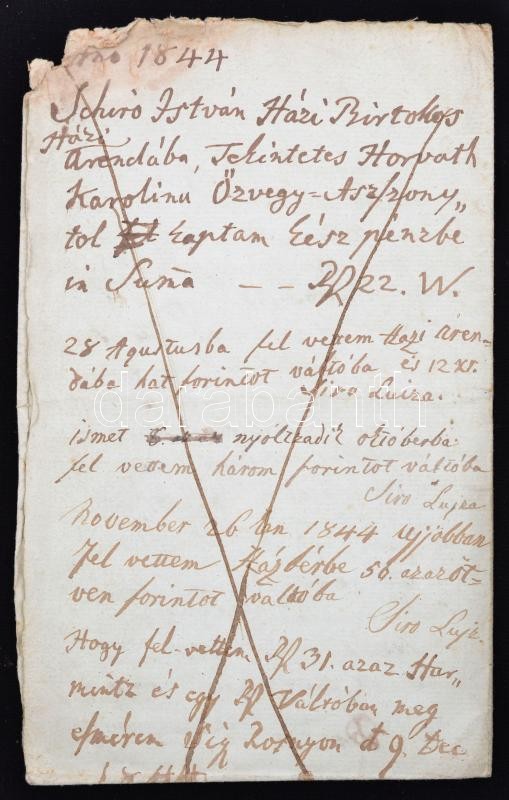 Anno 1844
Schiro István Házi Birtokos
Házi
Arendába, Tekintetes Horvath
Karolina Özvegy=Aszszony„
tol kaptam kész pénzbe
in Suma̅ – – Rf 22. W.
28 Agustusba fel vettem Hazi áren-
dába hat forintot váltóba és 12 xr.
Siro Luiza.
ismet nyóltzadik októberbe
fel vettem három forintot váltóba
Siro Lujza
November 26 kán 1844 ujjobban
fel vettem Házbérbe 50. azaz öt-
ven forintot váltóba
Siro Lujz.
Hogy fel-vettem Rf 31. azaz Har„
mintz és egy Rf Váltóban meg
esmérem Sig Rosnyon d 9. Dec
1844
darabanth